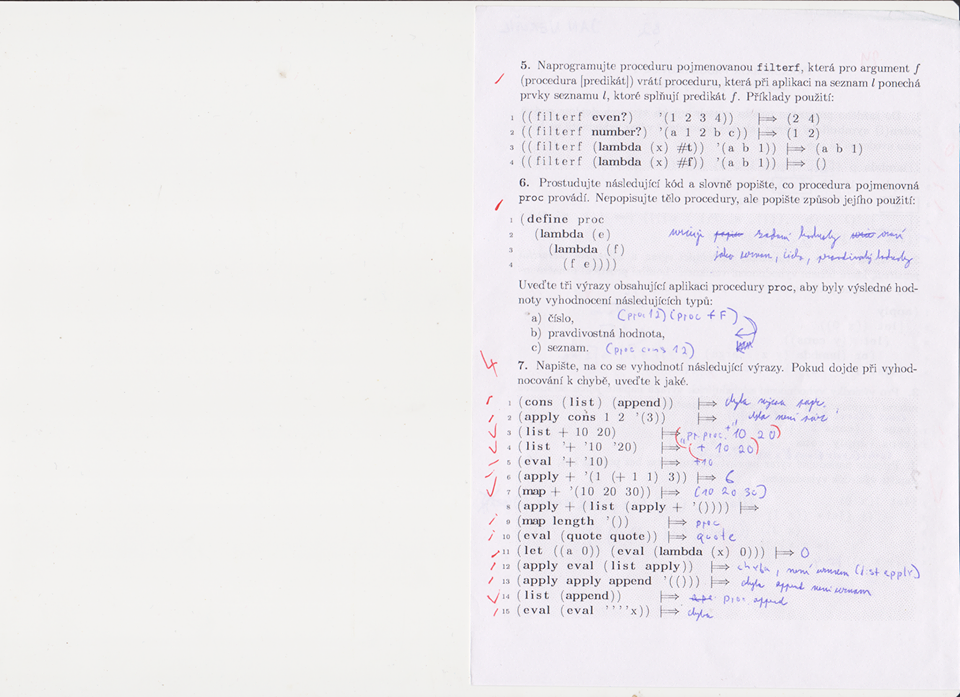 5. Naprogramujte proceduru pojmenovanou filterf, která pro argument f
(procedura [predikát]) vrátí proceduru, která při aplikaci na seznam l ponechá
prvky seznamu l, které splňují predikát f. Příklady použití:
1 ((filterf even?) '(1 2 3 4)) ⟾ (2 4)
2 ((filterf number?) '(a 1 2 b c)) ⟾ (1 2)
3 ((filterf (lambda (x) #t)) '(a b 1)) ⟾ (a b 1)
4 ((filterf (lambda (x) #f)) '(a b 1)) ⟾ ()
6. Prostudujte následující kód a slovně popište, co procedura pojmenovná
proc provádí. Nepopisujte tělo procedury, ale popište způsob jejího použití:
1 (define proc
2 (lambda (e) zadané hodnoty
3 (lambda (f) jako seznam, číslo, pravdivostní hodnoty
4 (f e))))
Uveďte tři výrazy obsahující aplikaci procedury proc, aby byly výsledné hod-
noty vyhodnocení následujících typů:
a) číslo, (proc 12) (proc + F)
b) pravdivostní hodnota,
c) seznam. (proc cons 12)
4
7. Napište, na co se vyhodnotí následující výrazy. Pokud dojde při vyhod-
nocování k chybě, uveďte k jaké.
1 (cons (list) (append)) ⟾ chyba
2 (apply cons 1 2 '(3)) ⟾ není
3 (list + 10 20) ⟾ ("pr. proc." 10 20)
4 (list '+ '10 '20) ⟾ (+ 10 20)
5 (eval '+ '10) ⟾ +10
6 (apply + '(1 (+ 1 1) 3)) ⟾ 6
7 (map + '(10 20 30)) ⟾ (10 20 30)
8 (apply + (list (apply + '()))) ⟾
9 (map length '()) ⟾ proc
10 (eval (quote quote)) ⟾ quote
11 (let ((a 0)) (eval (lambda (x) 0))) ⟾ 0
12 (apply eval (list apply)) ⟾ chyba, není seznam (list apply)
13 (apply apply append '(())) ⟾ chyba append není seznam
14 (list (append)) ⟾ proc append
15 (eval (eval ''''x)) ⟾ chyba